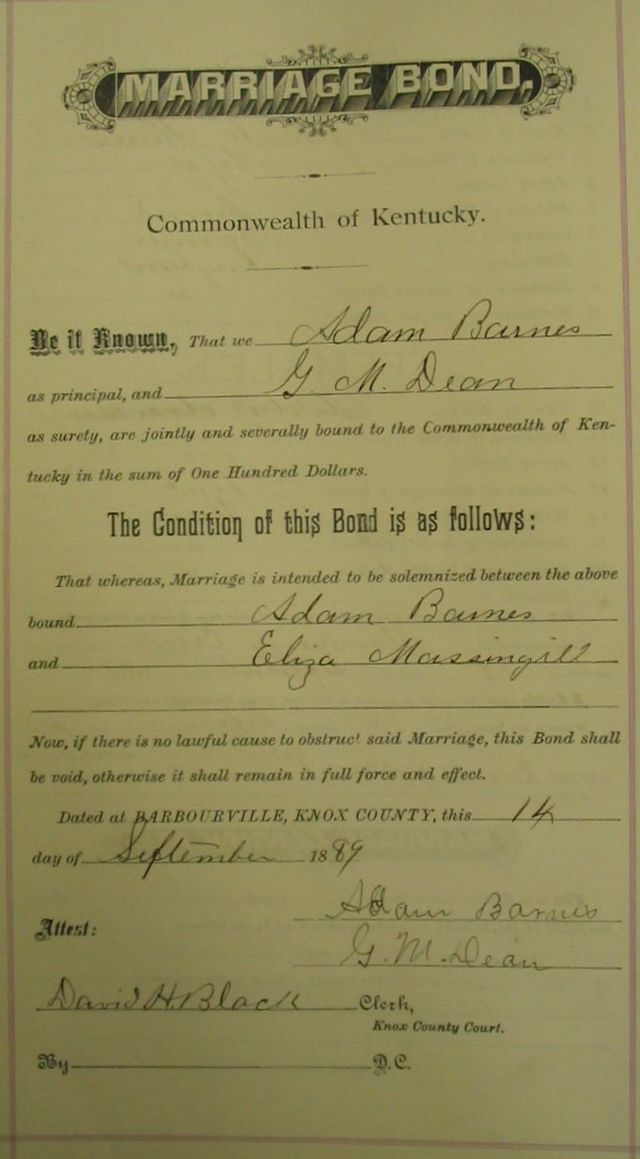 MARRIAGE BOND.
Commonwealth of Kentucky.
Be it Known, That we Adam Barnes
as principal, and G. M. Dean
as surety, are jointly and severally bound to the Commonwealth of Ken-
tucky in the sum of One Hundred Dollars.
The Condition of this Bond is as follows:
That whereas, Marriage is intended to be solemnized between the above
bound Adam Barnes
and Eliza Massingill
Now, if there is no lawful cause to obstruct said Marriage, this Bond shall
be void, otherwise it shall remain in full force and effect.
Dated at BARBOURVILLE, KNOX COUNTY, this 14
day of September 1889
Adam Barnes
Attest:
G. M. Dean
David H. Black Clerk,
Knox County Court.
By D.C.